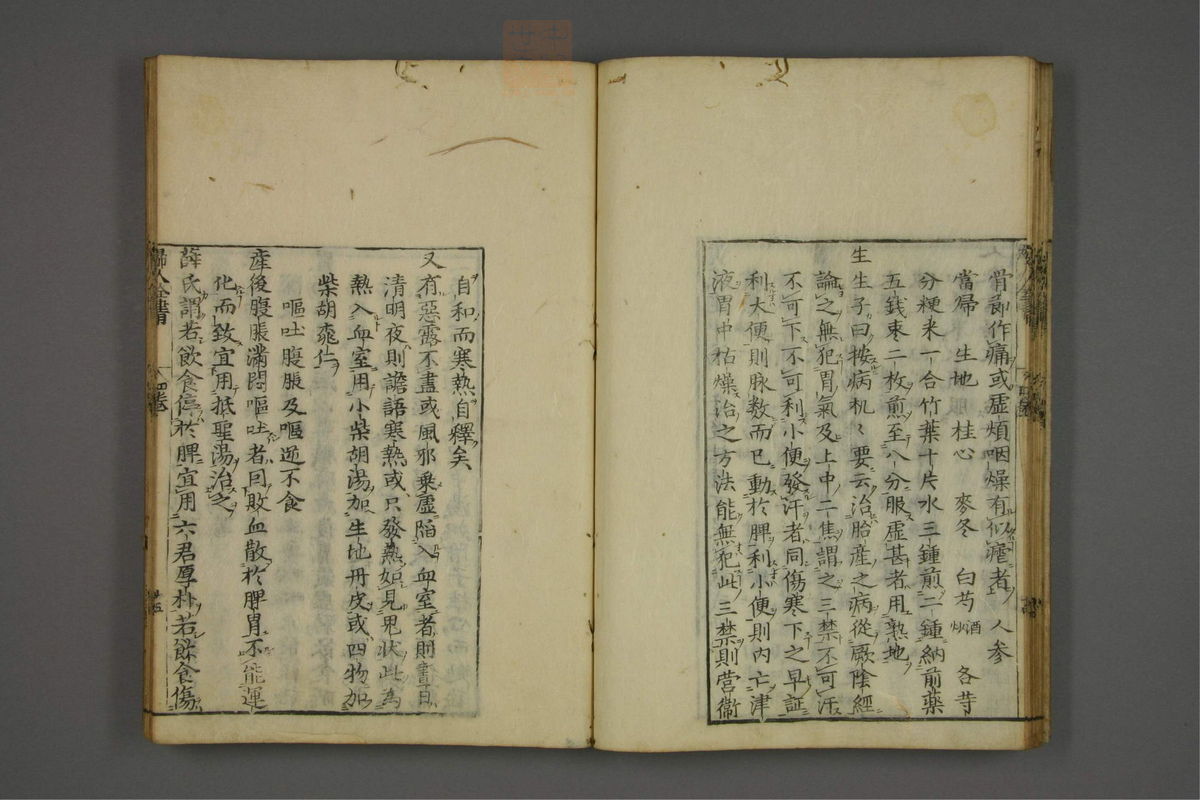 骨節作痛或虛煩咽燥有似瘧者人參
當歸 生地 桂心 麥冬 白芍酒炒 各等
分粳米一合竹葉十片水三鍾煎二鍾納前藥
五錢棗二枚煎至八分服虛甚者用熟地
生生子曰按病机〻要云治胎産之病從厥陰經
論之無犯胃氣及上中二焦謂之三禁不可汗
不可下不可利小便發汗者同傷寒下之早証
利大便則脉数而已動於脾利小便則内亡津
液胃中枯燥治之方法能無犯此三禁則营衞
自和而寒熱自釋矣
又有惡露不盡或風邪乗虛陷入血室者則晝日
清明夜則譫語寒熱或只發熱如見鬼状此為
熱入血室用小柴胡湯加生地丹皮或四物加
柴胡桃仁
嘔吐腹脹及嘔逆不食
産後腹脹滿悶嘔吐者因敗血散於脾胃不能運
化而致宜用抵聖湯治之
薛氏謂若飲食停於脾宜用六君厚朴若飲食傷
婦人全書
四卷
廿五